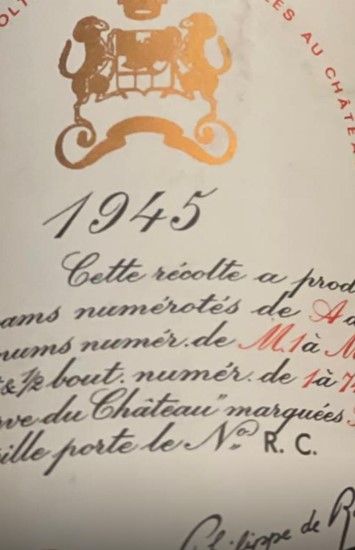 ES AU CHÂTEAU
1945
Cette récolte a prod
numérotés de A
numér. de M.1 à
& 1/2 bout. numér. de 1 à 7
du Château" marquées
porte le No. R. C.
Philippe de R